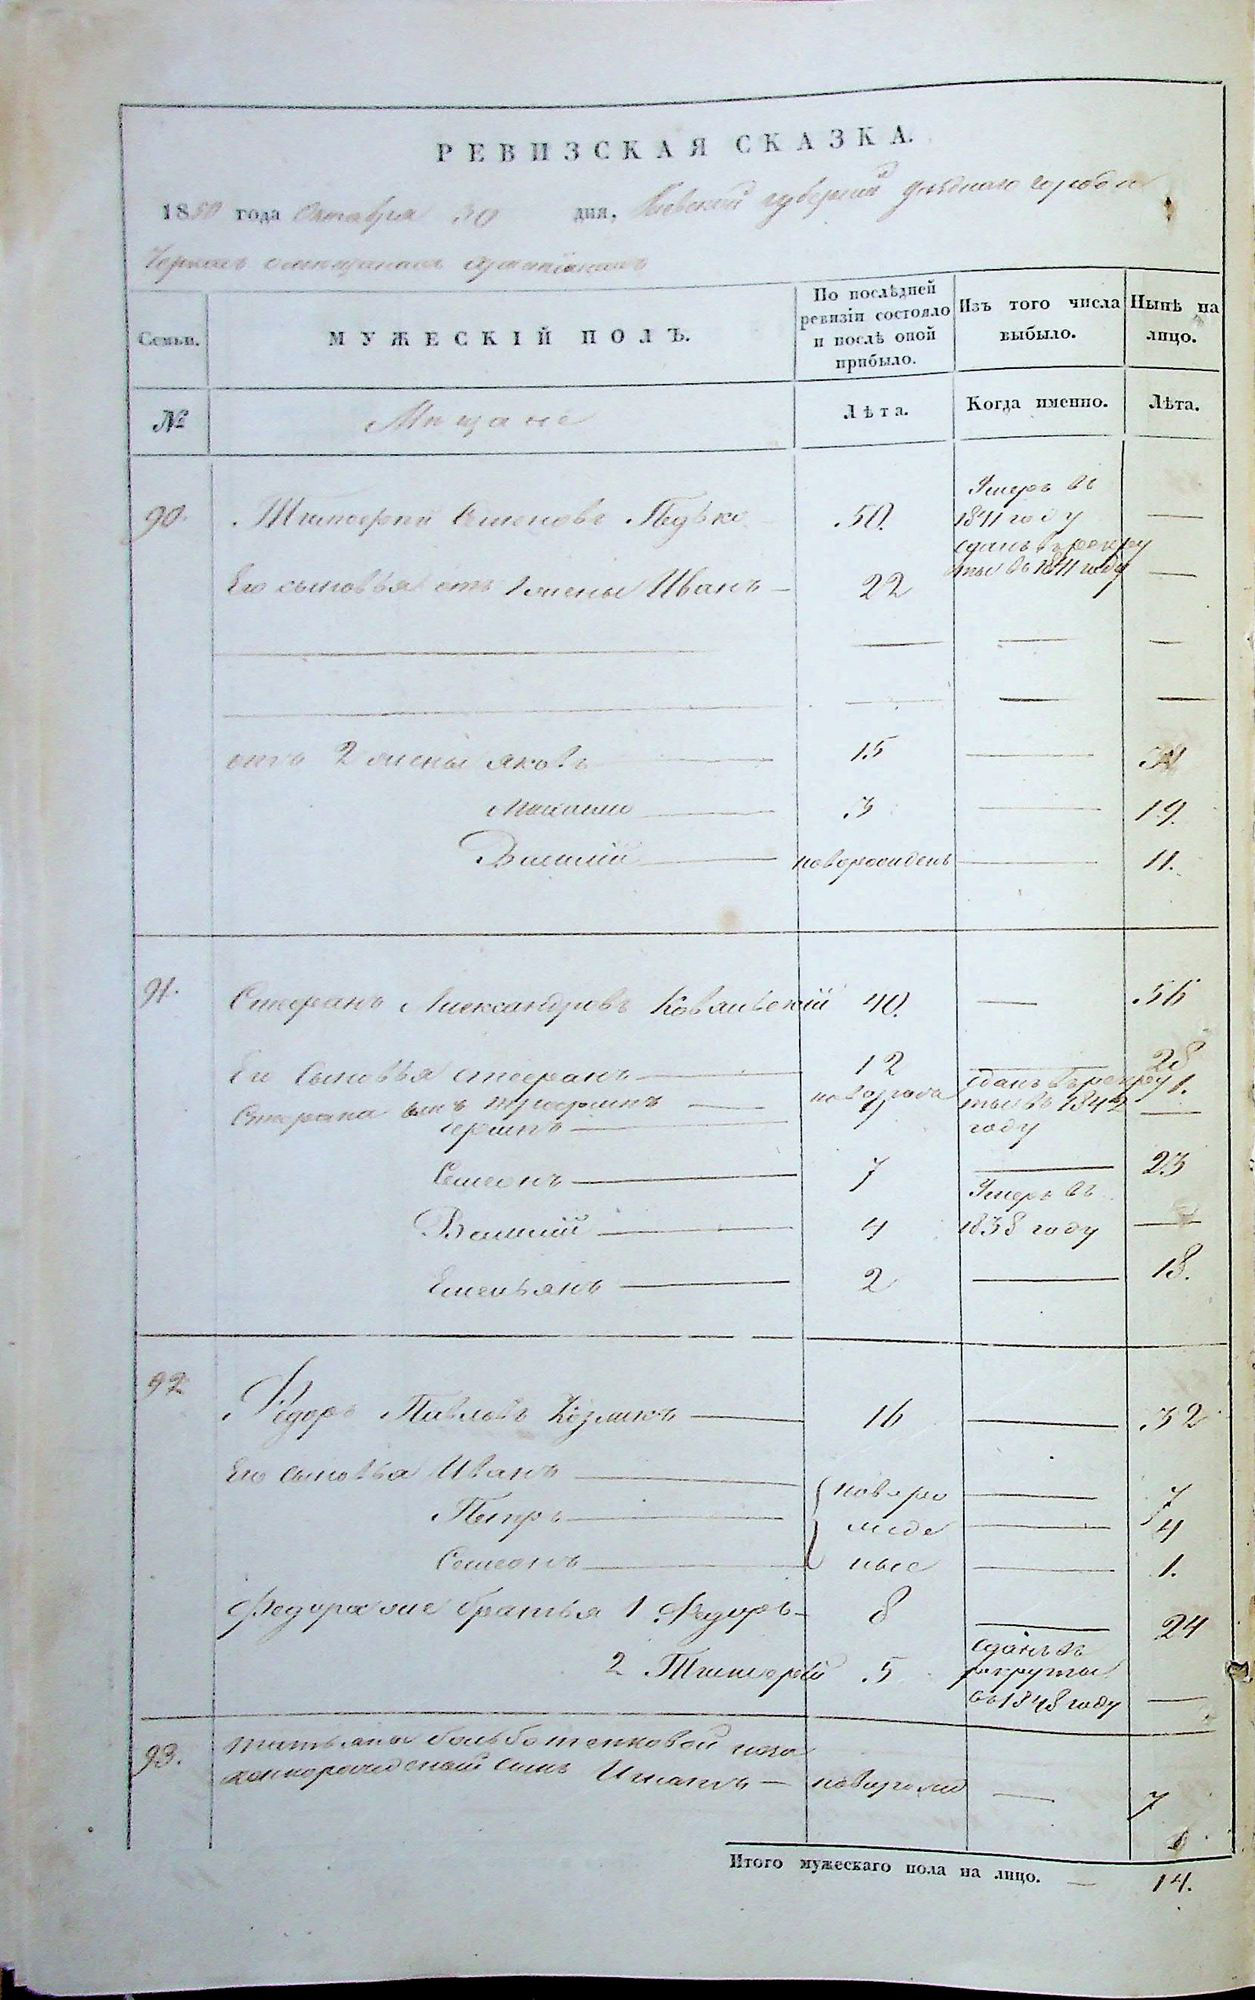 РЕВИЗСКАЯ СКАЗКА.
1850 года Октября 30 дня, Киевской губернии уѣзднаго города
Черкасъ о мещанахъ христіанахъ
Семьи. МУЖЕСКІЙ ПОЛЪ. По послѣдней ревизіи состояло и послѣ оной прибыло. Изъ того числа выбыло. Нынѣ на лицо.
№ Мещане Лѣта. Когда именно. Лѣта.
90. Тимофей Семеновъ Педько 50. Умеръ въ 1841 году —
Его сыновья отъ 1 жены Иванъ — 22 сданъ въ рекруты въ 1841 году —
отъ 2 жены Яковъ — 15 — 31
3 — 19.
Василій — новорожденъ — 11.
91. Стефанъ Александровъ Ковальскій 40. — 56
Его сыновья Стефанъ — 12 — 28
Стефана сынъ Трофимъ — новорож 1.
9 сданъ въ рекруты въ 1842 году —
Семенъ — 7 — 23
Василій — 4 Умеръ въ 1838 году —
Емельянъ — 2 — 18.
92 Федоръ Павловъ Козликъ — 16 — 32
Его сыновья Иванъ — новоро — 7
Петръ — жде — 4
Семенъ — ные — 1.
Федора же братья 1 Федоръ — 8 — 24
2 Тимофей 5 сданъ въ рекруты въ 1848 году —
93. Татьяны
незаконорожденый сынъ Игнатъ — новорож — 7
Итого мужескаго пола на лицо. — 14.